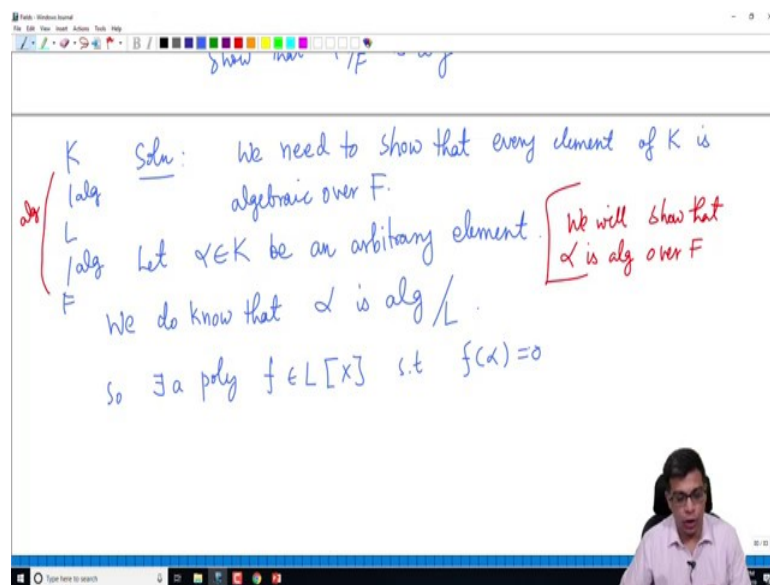 Fields - Windows Journal
File Edit View Insert Actions Tools Help
B I
Show that /F
K Soln: We need to show that every element of K is
alg | alg algebraic over F.
L
| alg Let α∈K be an arbitrary element. We will show that
F α is alg over F
We do know that α is alg/L.
So ∃ a poly f ∈ L[X] s.t f(α)=0
Type here to search